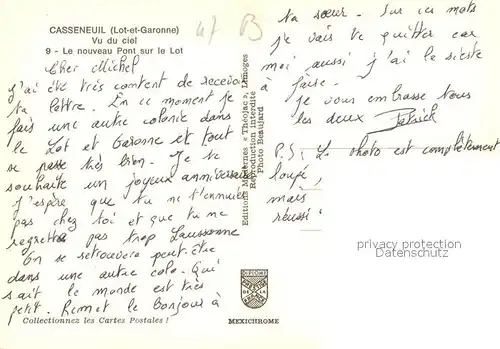 CASSENEUIL (Lot-et-Garonne)
Vu du ciel
9 - Le nouveau Pont sur le Lot
47 B
Cher Michel
J'ai été très content de recevoir
ta lettre. En ce moment je
fais une autre colonie dans
le Lot et Garonne et tout
se passe très bien. Je te
souhaite un joyeux anniversaire
J'espère que tu ne t'ennuies
pas chez toi et que tu ne
regrettes pas trop Laussonne
On se retrouvera peut-être
dans une autre colo. Qui
sait le monde est très
petit. Remet le bonjour à
Collectionnez les Cartes Postales !
Editions Modernes « Théojac », Limoges
Reproduction interdite
Photo Beaujard
MEXICHROME
ta sœur. Sur ces mots
je vais te quitter car
moi aussi j'ai la sieste
à faire.
je vous embrasse tous
les deux Patrick
P.S: La photo est complètement
loupé,
mais
réussi!
copyright protected
Datenschutz